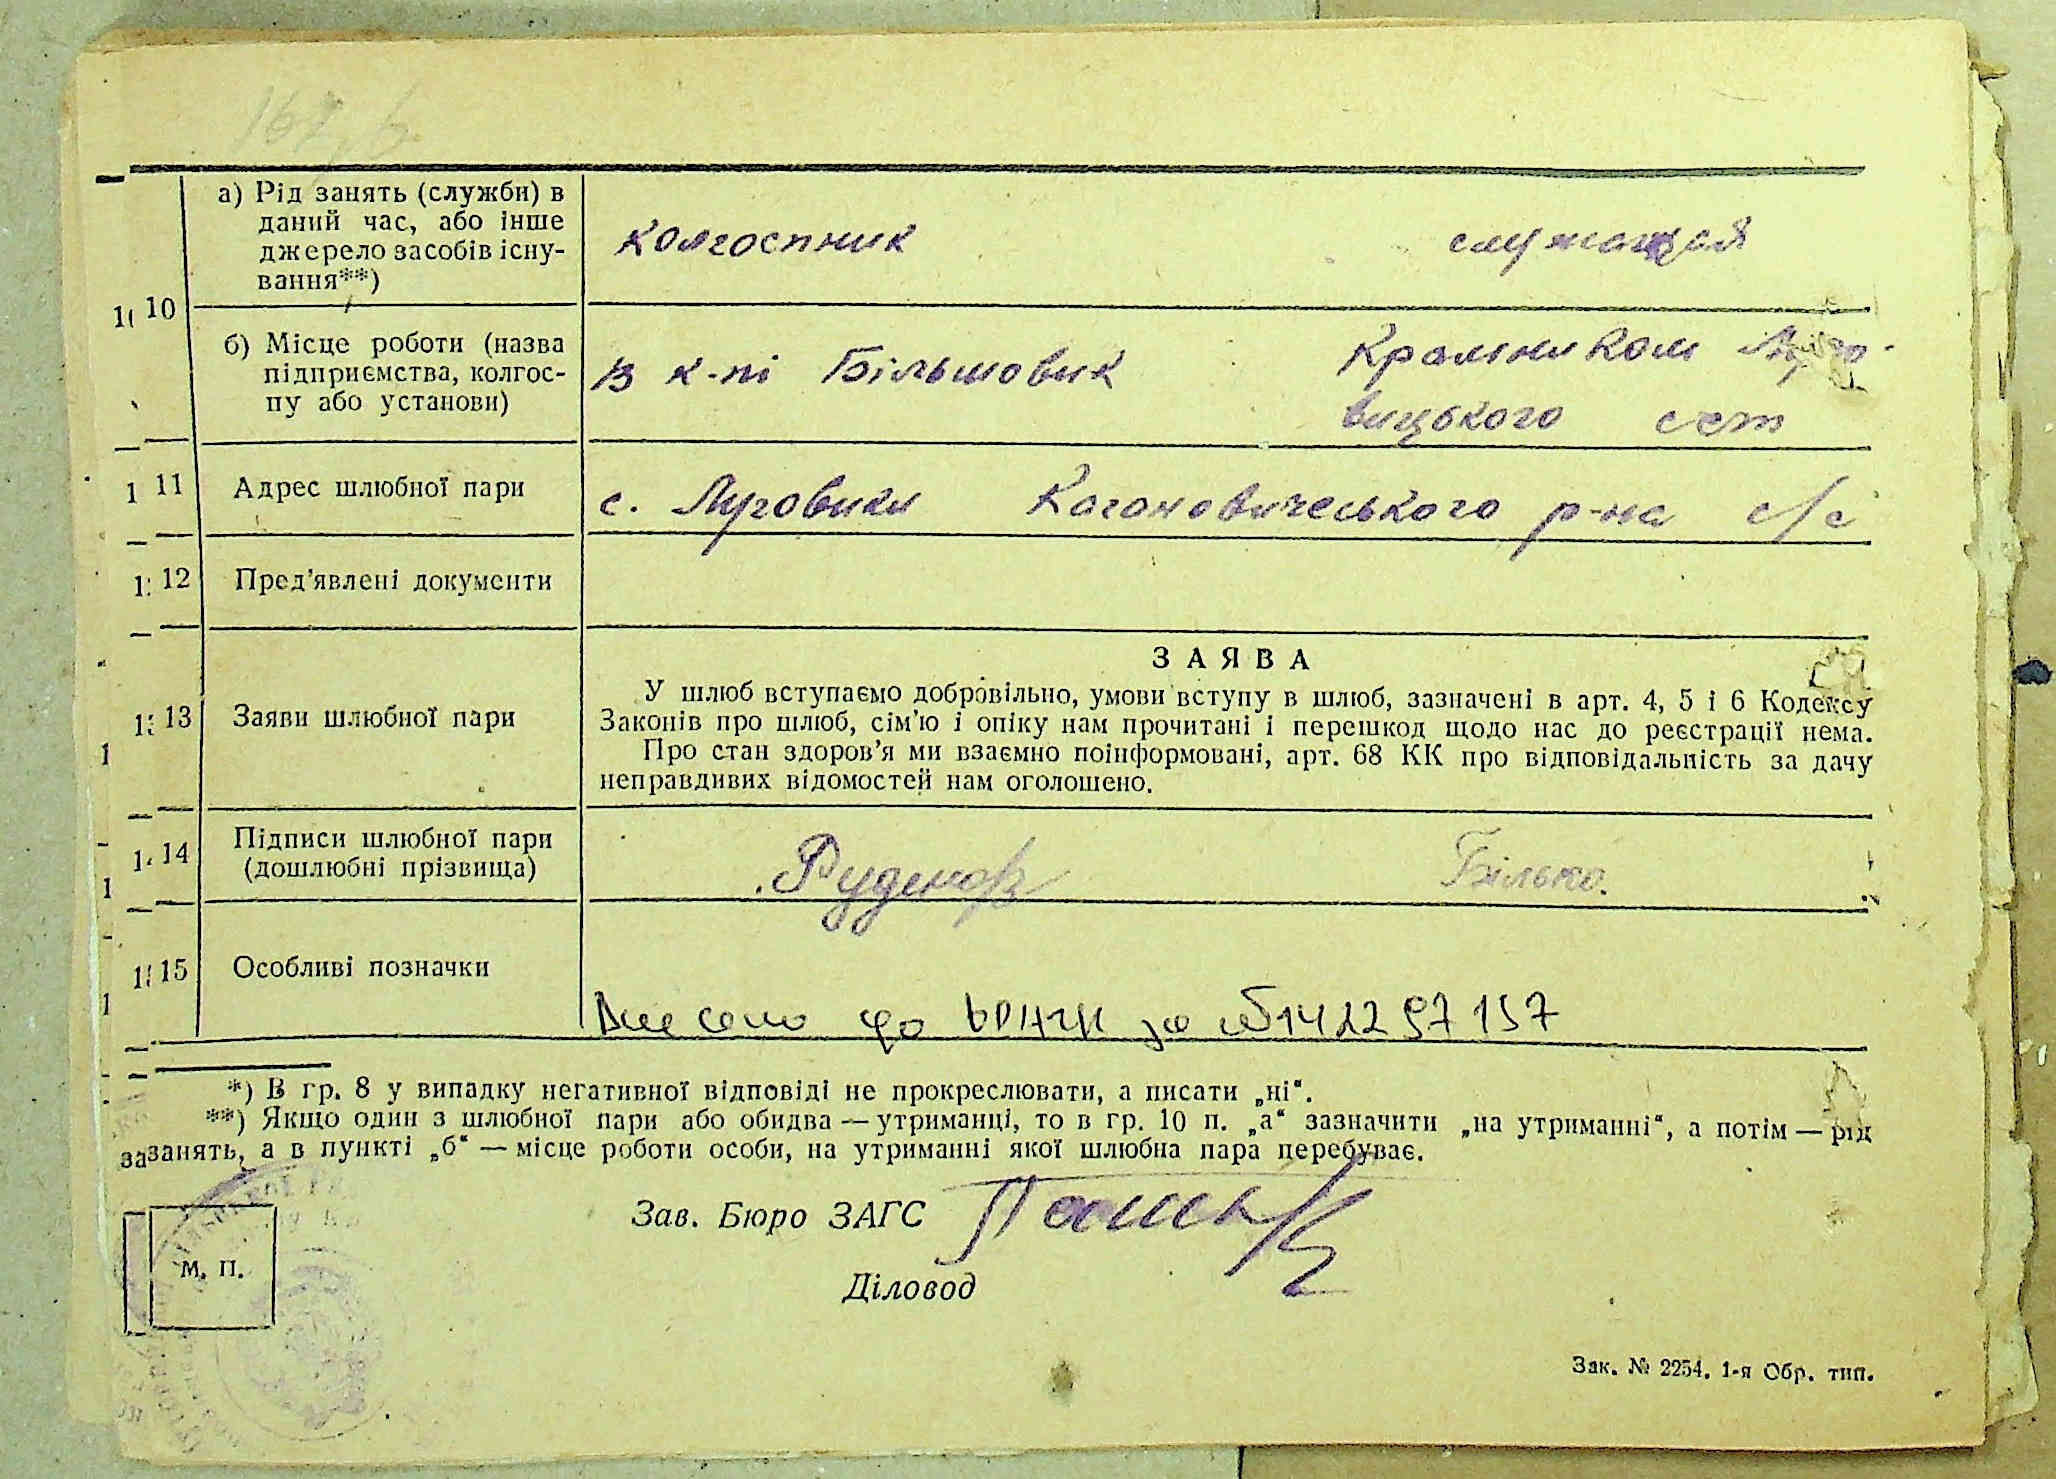 а) Рід занять (служби) в
даний час, або інше
джерело засобів існу-
вання**)
колгоспник
служащая
10
б) Місце роботи (назва
підприємства, колгос-
пу або установи)
в к-пі Більшовик
Крамником Луго-
вицького сст
11 Адрес шлюбної пари
с. Луговики Кагановичеського р-на с/с
12 Пред'явлені документи
ЗАЯВА
13 Заяви шлюбної пари
У шлюб вступаємо добровільно, умови вступу в шлюб, зазначені в арт. 4, 5 і 6 Кодексу
Законів про шлюб, сім'ю і опіку нам прочитані і перешкод щодо нас до реєстрації нема.
Про стан здоров'я ми взаємно поінформовані, арт. 68 КК про відповідальність за дачу
неправдивих відомостей нам оголошено.
14 Підписи шлюбної пари
(дошлюбні прізвища)
Руденок
Білько.
15 Особливі позначки
Внесено до за №
*) В гр. 8 у випадку негативної відповіді не прокреслювати, а писати „ні“.
**) Якщо один з шлюбної пари або обидва — утриманці, то в гр. 10 п. „а“ зазначити „на утриманні“, а потім — рід
занять, а в пункті „б“ — місце роботи особи, на утриманні якої шлюбна пара перебуває.
Зав. Бюро ЗАГС
М. П.
Діловод
Зак. № 2254. 1-я Обр. тип.